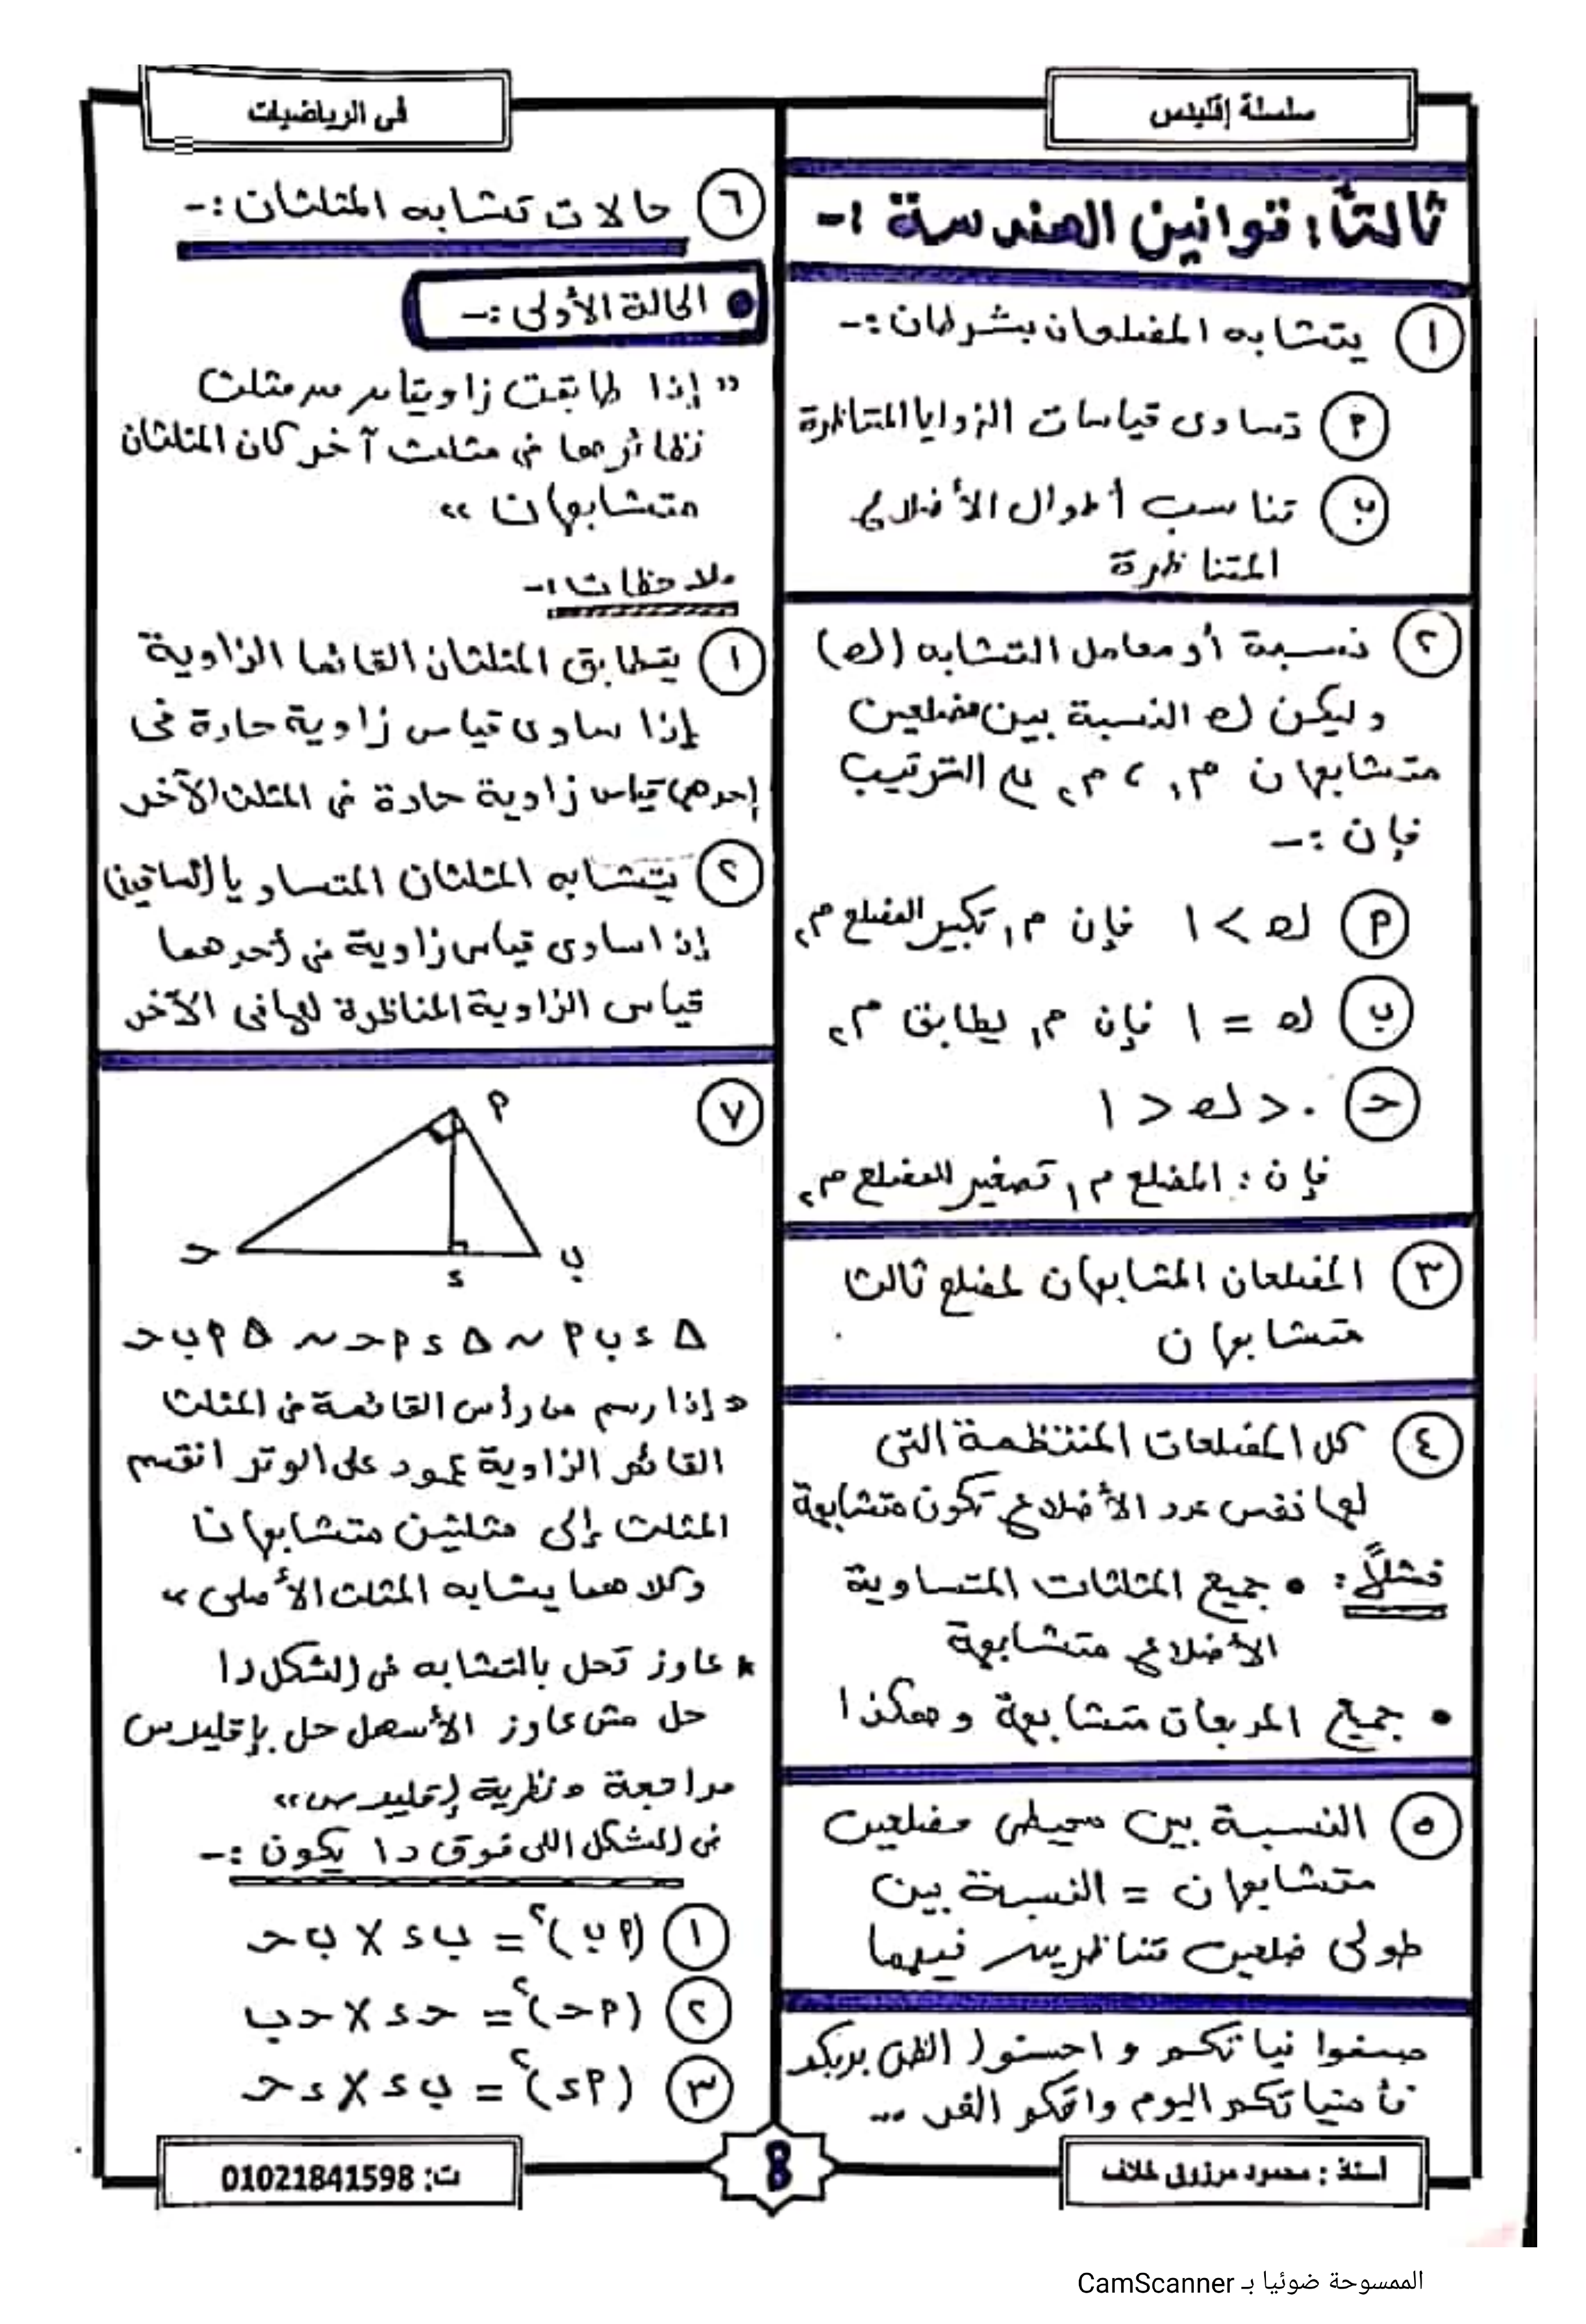 سلسلة إقليدس
فى الرياضيات
ثالثاً: قوانين الهندسة :-
١ يتشابه المضلعان بشرطان :-
٢ تساوى قياسات الزوايا المتناظرة
ب تناسب أطوال الأضلاع
المتناظرة
٢ نسبة أو معامل التشابه (ك)
وليكن ك النسبة بين مضلعين
متشابهان م١ ، م٢ على الترتيب
فإن :-
P ك > ١ فإن م١ تكبير المضلع م٢
ب ك = ١ فإن م١ يطابق م٢
ح ٠ < ك < ١
فإن : المضلع م١ تصغير المضلع م٢
٣ المضلعان المشابهان لمضلع ثالث
متشابهان
٤ كل المضلعات المنتظمة التى
لها نفس عدد الأضلاع تكون متشابهة
فمثلاً : • جميع المثلثات المتساوية
الأضلاع متشابهة
• جميع المربعات متشابهة وهكذا
٥ النسبة بين محيطى مضلعين
متشابهان = النسبة بين
طولى ضلعين متناظرين فيهما
صفوا نياتكم واحسنوا الظن بربكم
فأمنياتكم اليوم واقعكم الغد ...
٦ حالات تشابه المثلثان :-
• الحالة الأولى :-
" إذا طابقت زاويتان من مثلث
نظائرهما فى مثلث آخر كان المثلثان
متشابهان "
ملاحظات :-
١ يتطابق المثلثان القائما الزاوية
إذا ساوى قياس زاوية حادة فى
إحدهما قياس زاوية حادة فى المثلث الآخر
٢ يتشابه المثلثان المتساويا الساقين
إذا ساوى قياس زاوية فى أحدهما
قياس الزاوية المناظرة لها فى الآخر
٧
P
ح
ء
ب
Δ ء ب P ~ Δ ء P ح ~ Δ P ب ح
" إذا رسم من رأس القائمة فى المثلث
القائم الزاوية عمود على الوتر انقسم
المثلث إلى مثلثين متشابهان
وكلاهما يشابه المثلث الأصلى "
* عاوز تحل بالتشابه فى الشكل دا
حل مش عاوز الأسهل حل بإقليدس
مراجعة " نظرية إقليدس "
فى الشكل اللى فوق دا يكون :-
١ (P ب)² = ب ء × ب ح
٢ (P ح)² = ح ء × ح ب
٣ (P ء)² = ب ء × ء ح
أستاذ : محمود مرزوق خلاف
8
ت: 01021841598
الممسوحة ضوئيا بـ CamScanner